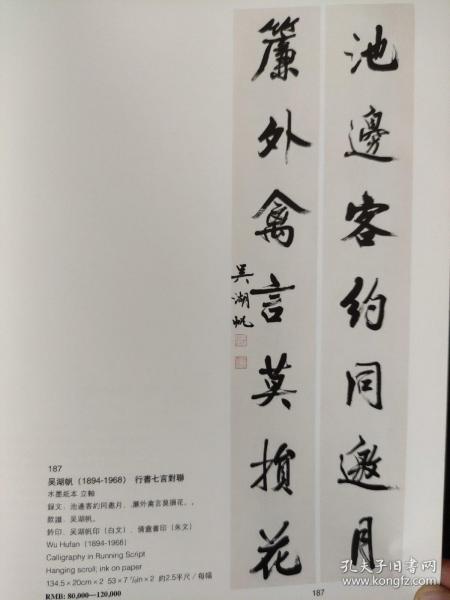 池邊客約同邀月
簾外禽言莫損花
吳湖帆
187
吴湖帆（1894-1968） 行書七言對聯
水墨紙本 立軸
録文：池邊客約同邀月，簾外禽言莫損花。
款識：吴湖帆。
鈐印：吴湖帆印（白文）、倩盦書印（朱文）
Wu Hufan (1894-1968)
Calligraphy in Running Script
Hanging scroll; ink on paper
134.5 × 20cm × 2 53 × 7 ⅞in × 2 約2.5平尺／每幅
RMB: 80,000—120,000
187
孔夫子旧书网